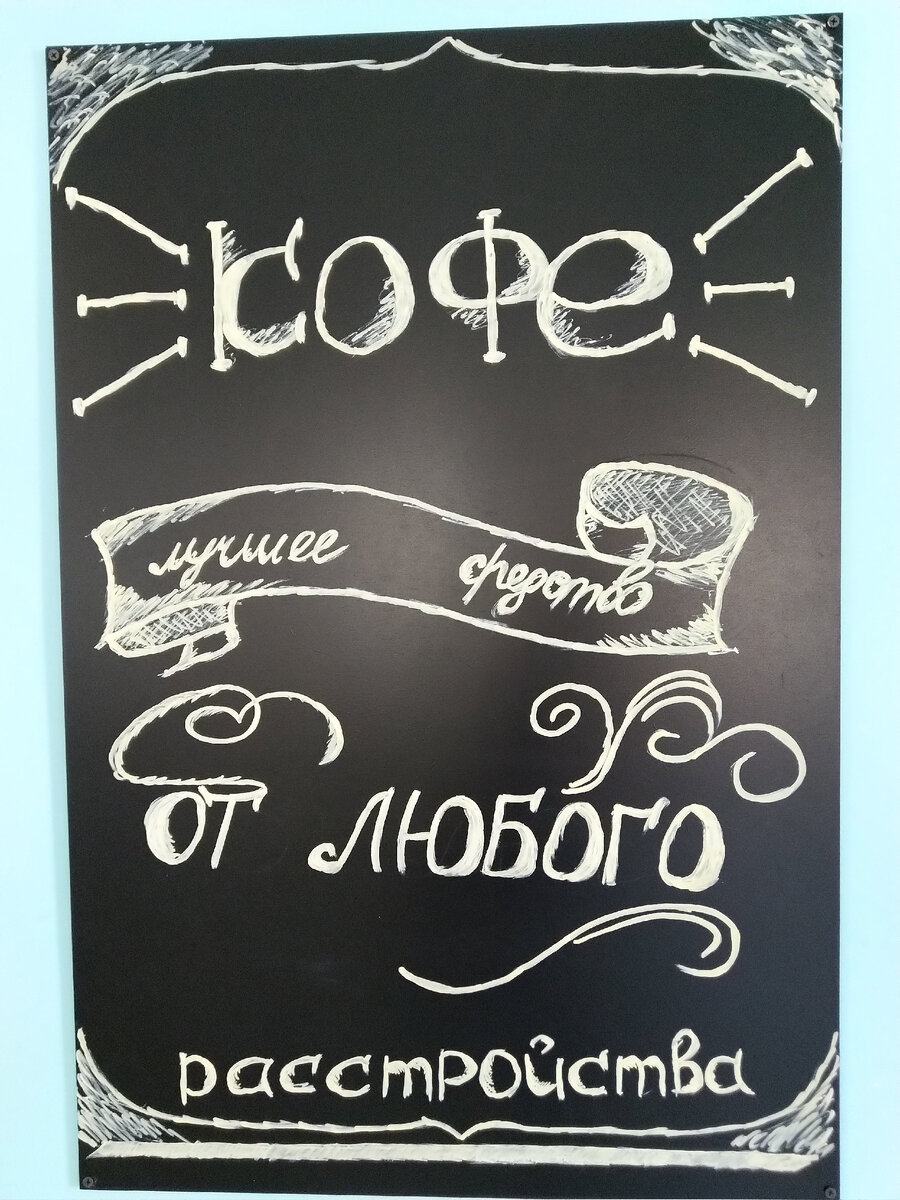 кофе
лучшее средство
от любого
расстройства